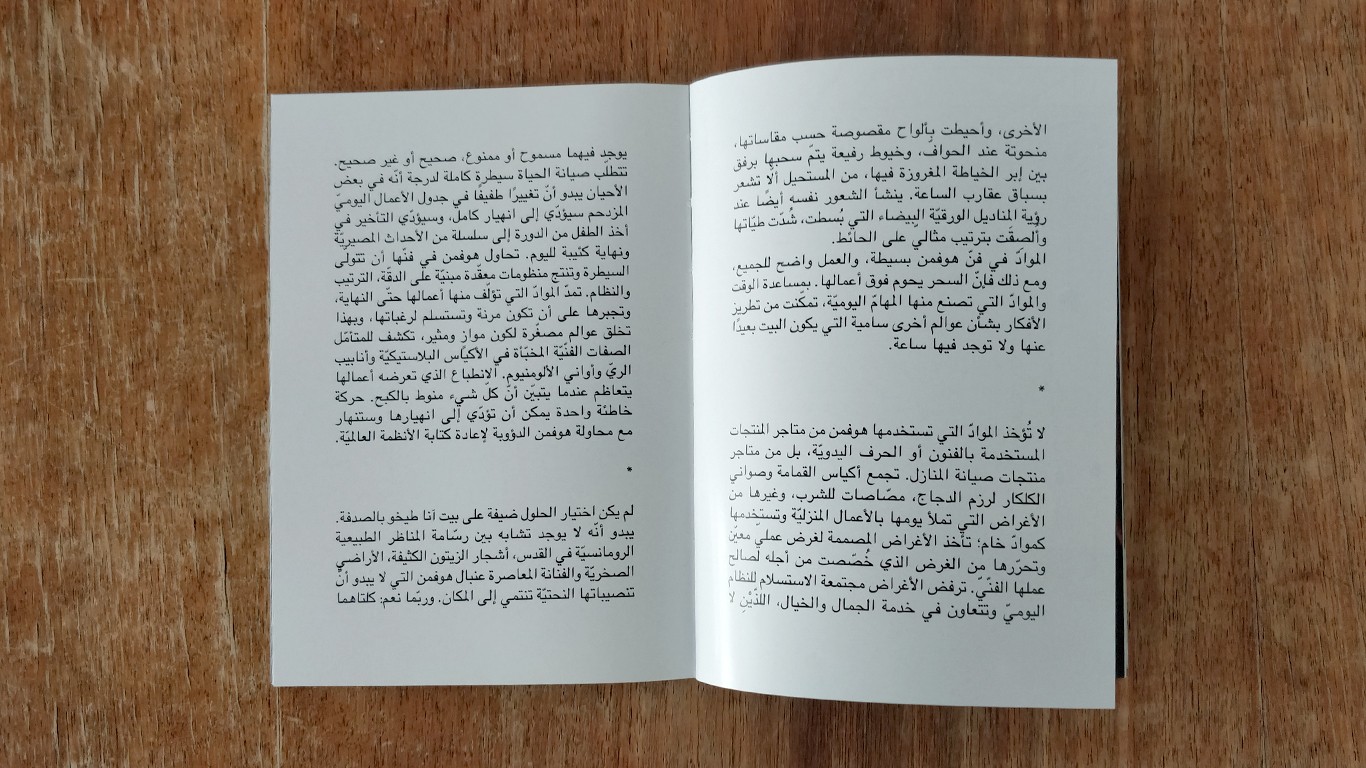 الأخرى، وأحيطت بألواح مقصوصة حسب مقاساتها،
منحوتة عند الحواف، وخيوط رفيعة يتمّ سحبها برفق
بين إبر الخياطة المغروزة فيها، من المستحيل ألا تشعر
بسباق عقارب الساعة. ينشأ الشعور نفسه أيضًا عند
رؤية المناديل الورقيّة البيضاء التي بُسطت، شُدّت طيّاتها
وألصقت بترتيب مثاليّ على الحائط.
الموادّ في فنّ هوفمن بسيطة، والعمل واضح للجميع،
ومع ذلك فإنّ السحر يحوم فوق أعمالها. بمساعدة الوقت
والموادّ التي تصنع منها المهامّ اليوميّة، تمكّنت من تطريز
الأفكار بشأن عوالم أخرى سامية التي يكون البيت بعيدًا
عنها ولا توجد فيها ساعة.
*
لا تُؤخذ الموادّ التي تستخدمها هوفمن من متاجر المنتجات
المستخدمة بالفنون أو الحرف اليدويّة، بل من متاجر
منتجات صيانة المنازل. تجمع أكياس القمامة وصواني
الكلكار لرزم الدجاج، مصّاصات للشرب، وغيرها من
الأغراض التي تملأ يومها بالأعمال المنزليّة وتستخدمها
كموادّ خام؛ تأخذ الأغراض المصممة لغرض عمليّ معيّن
وتحرّرها من الغرض الذي خُصّصت من أجله لصالح
عملها الفنّيّ. ترفض الأغراض مجتمعة الاستسلام للنظام
اليوميّ وتتعاون في خدمة الجمال والخيال، اللذَيْنِ لا
يوجد فيهما مسموح أو ممنوع، صحيح أو غير صحيح.
تتطلّب صيانة الحياة سيطرة كاملة لدرجة أنّه في بعض
الأحيان يبدو أنّ تغييرًا طفيفًا في جدول الأعمال اليوميّ
المزدحم سيؤدّي إلى انهيار كامل، وسيؤدّي التأخير في
أخذ الطفل من الدورة إلى سلسلة من الأحداث المصيريّة
ونهاية كئيبة لليوم. تحاول هوفمن في فنّها أن تتولّى
السيطرة وتنتج منظومات معقّدة مبنيّة على الدقّة، الترتيب
والنظام. تمدّ الموادّ التي تؤلّف منها أعمالها حتّى النهاية،
وتجبرها على أن تكون مرنة وتستسلم لرغباتها، وبهذا
تخلق عوالم مصغّرة لكون موازٍ ومثير، تكشف للمتأمّل
الصفات الفنّيّة المخبّأة في الأكياس البلاستيكيّة وأنابيب
الريّ وأواني الألومنيوم. الانطباع الذي تعرضه أعمالها
يتعاظم عندما يتبيّن أنّ كلّ شيء منوط بالكبح. حركة
خاطئة واحدة يمكن أن تؤدّي إلى انهيارها وستنهار
مع محاولة هوفمن الدؤوبة لإعادة كتابة الأنظمة العالميّة.
*
لم يكن اختيار الحلول ضيفة على بيت أنا طيخو بالصدفة.
يبدو أنّه لا يوجد تشابه بين رسّامة المناظر الطبيعية
الرومانسيّة في القدس، أشجار الزيتون الكثيفة، الأراضي
الصخريّة والفنانة المعاصرة عنبال هوفمن التي لا يبدو أنّ
تنصيباتها النحتيّة تنتمي إلى المكان. وربّما نعم: كلتاهما